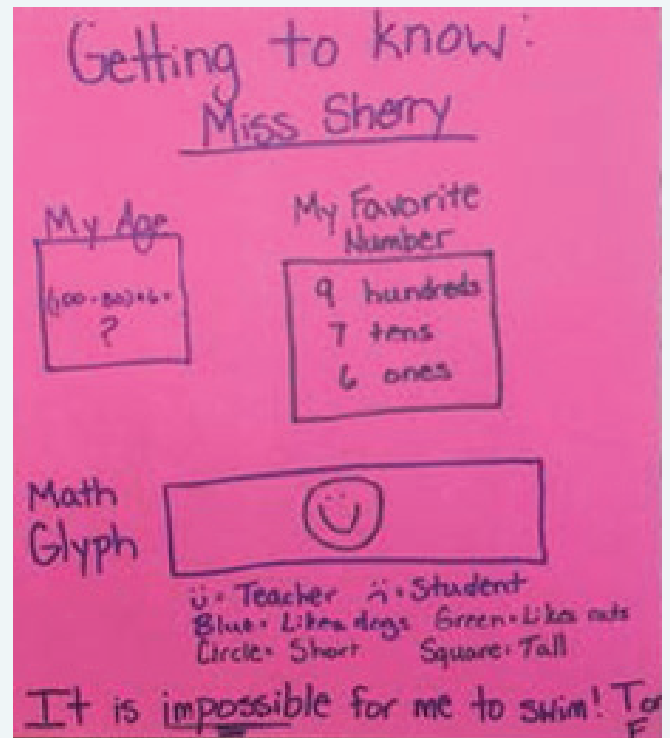 Getting to know:
Miss Sherry
My Age
(100-80)+6=
?
My Favorite
Number
9 hundreds
7 tens
6 ones
Math
Glyph
ü = Teacher ä = Student
Blue = Likes dogs Green = Likes cats
Circle = Short Square = Tall
It is impossible for me to swim! T or
F